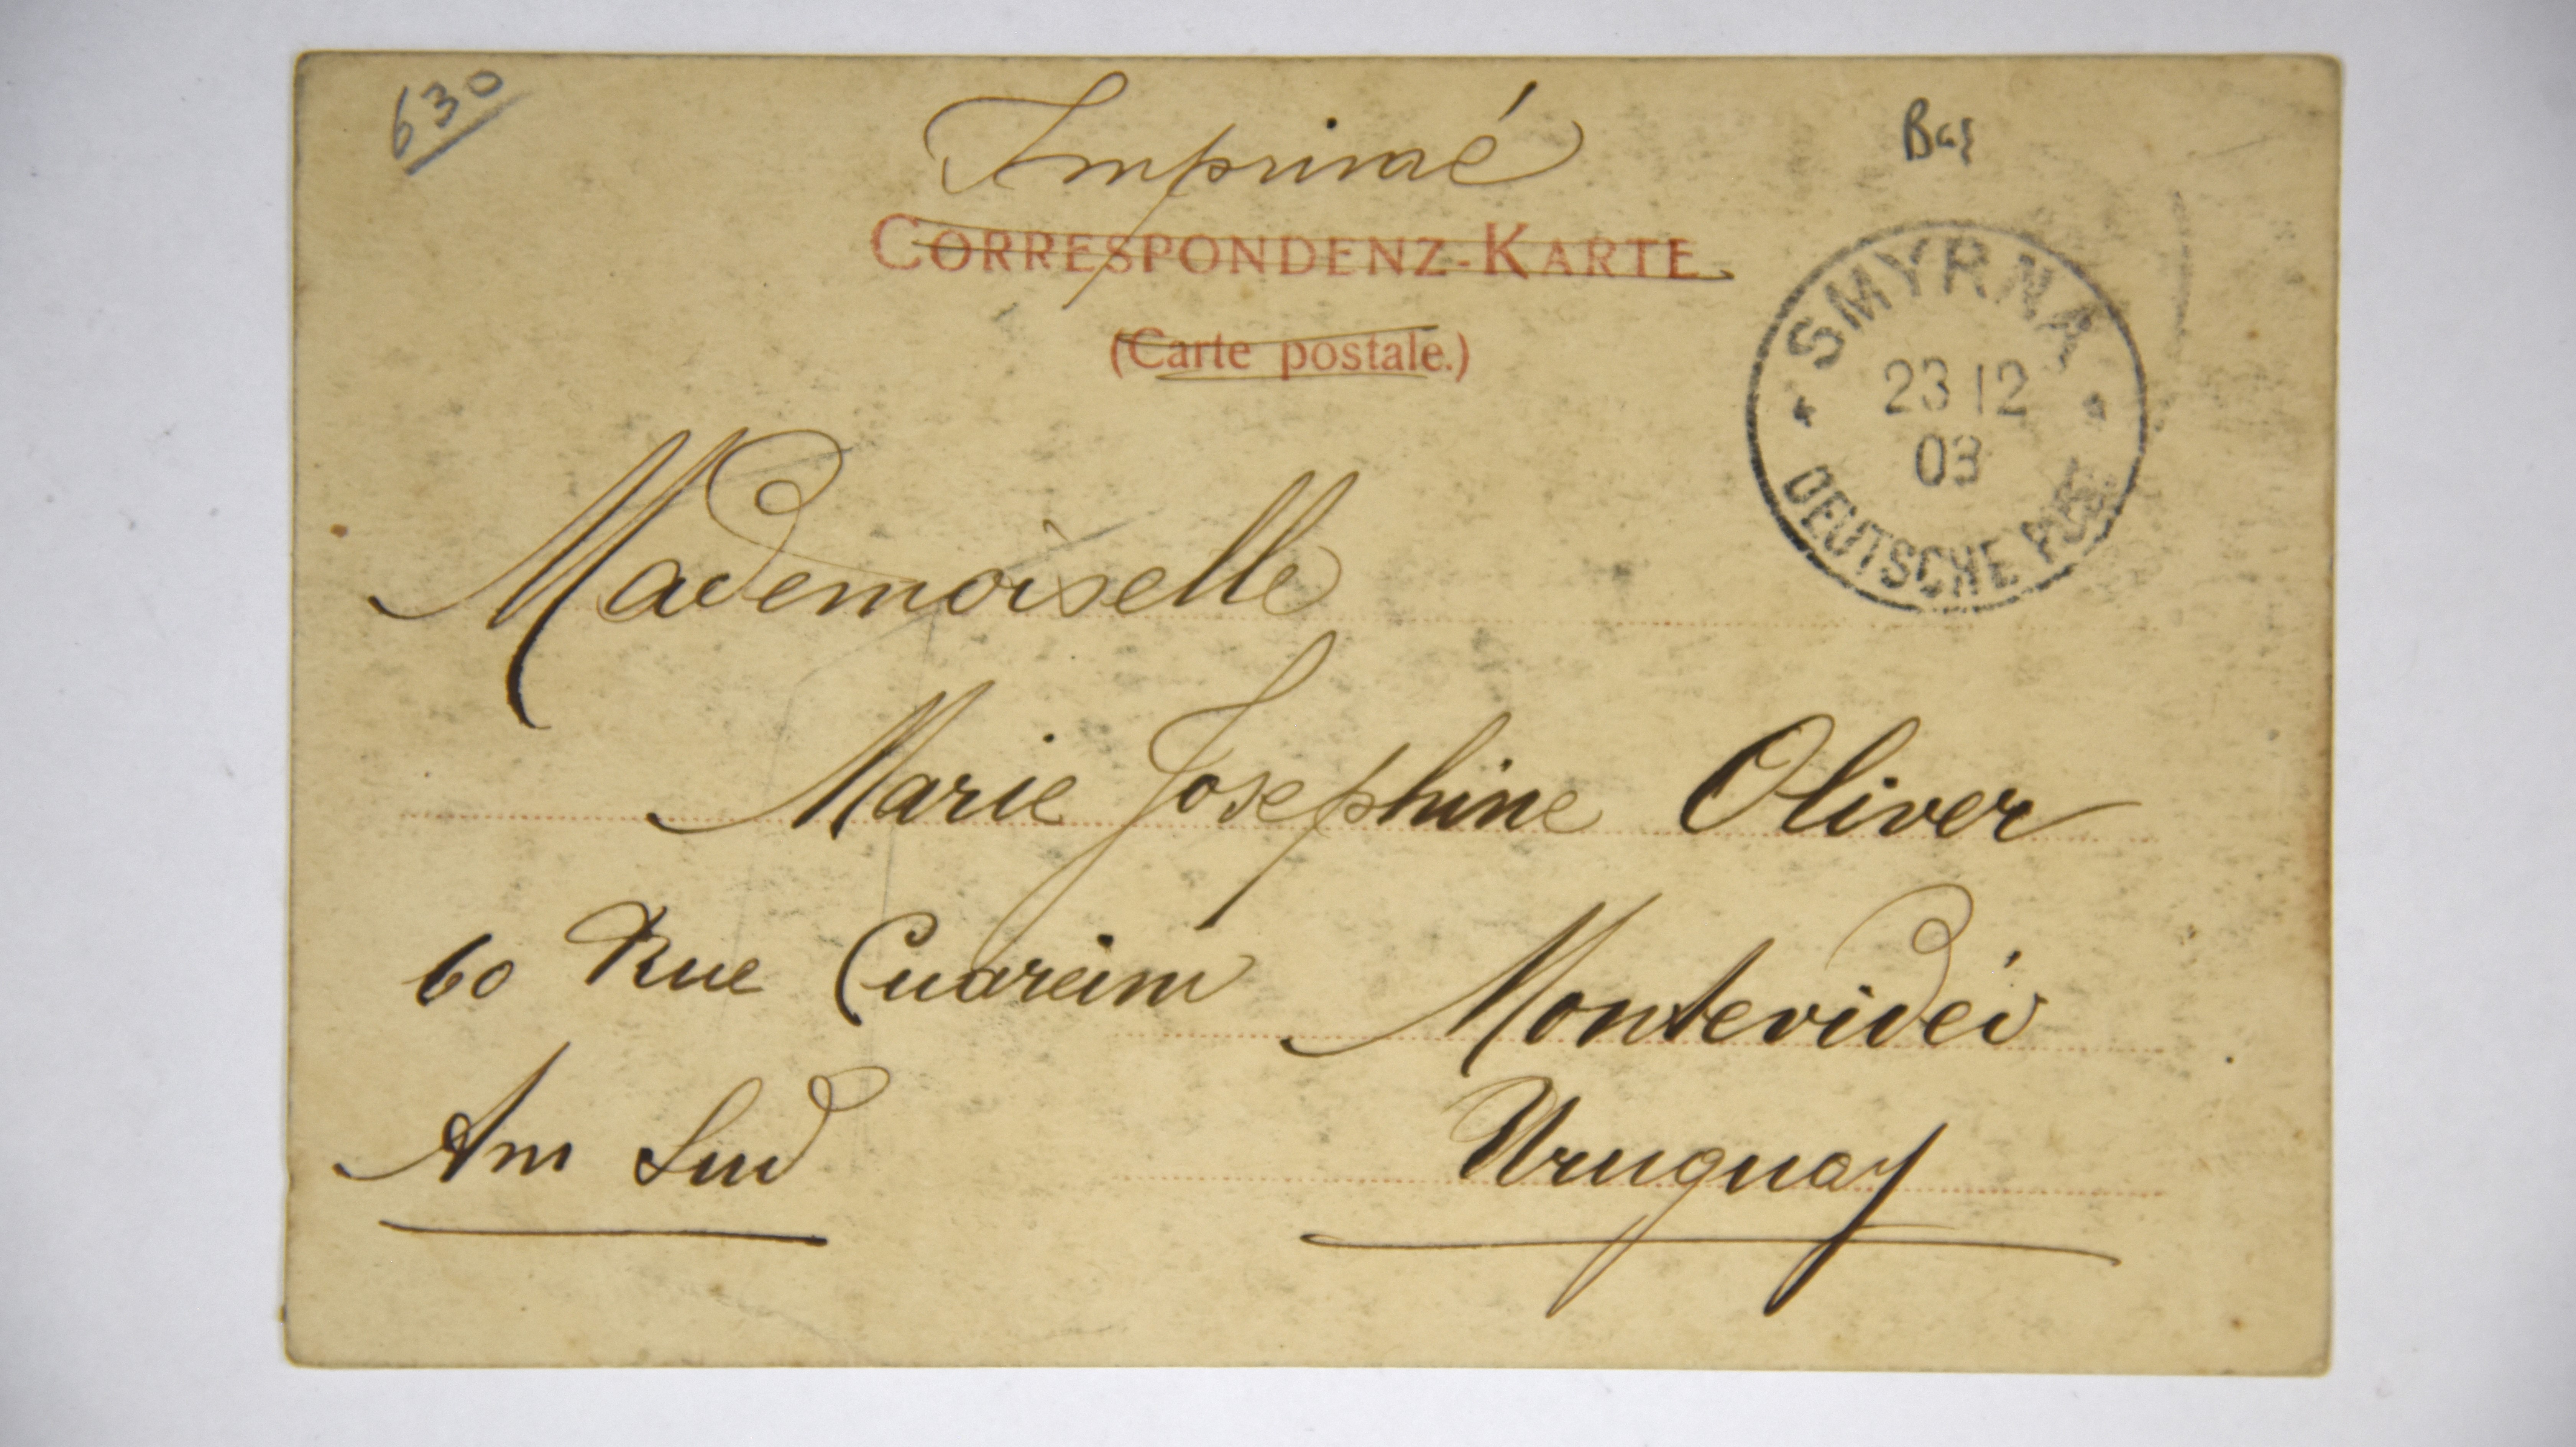 630
Imprimé
CORRESPONDENZ-KARTE
(Carte postale.)
SMYRNA
23 12
03
DEUTSCHE POST
Mademoiselle
Marie Josephine Oliver
60 Rue Cuareim Montevidéo
Am Sud Uruguay